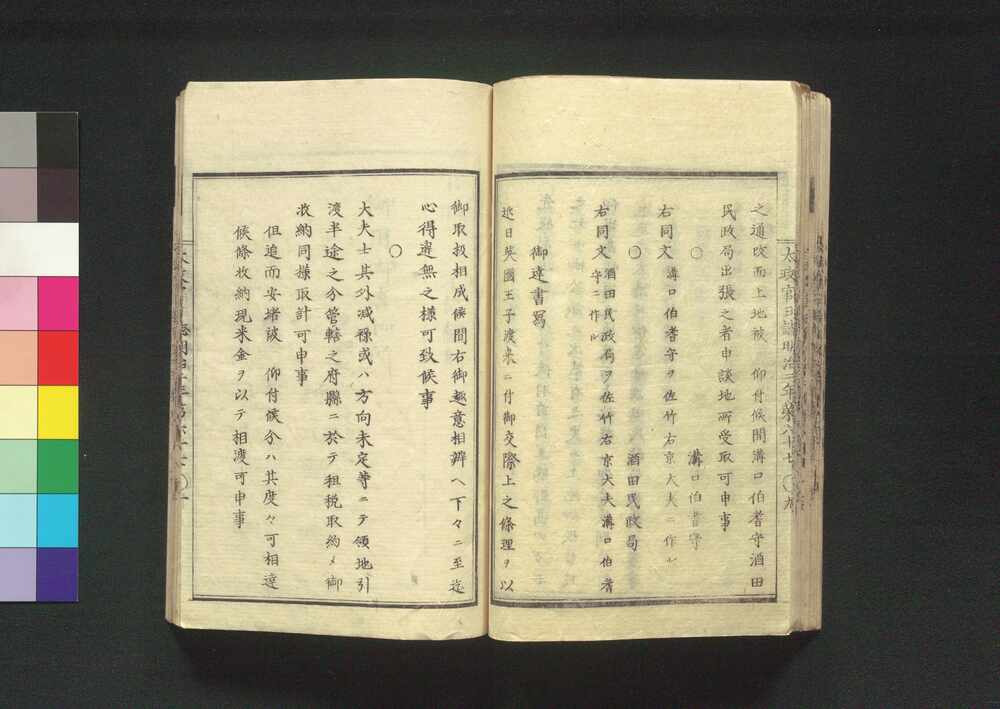 之通改而上地被　仰付候間溝口伯耆守酒田
民政局出張之者申談地所受取可申事
〇　溝口伯耆守
右同文溝口伯耆守ヲ佐竹右京大夫ニ作ル
〇　酒田民政局
右同文酒田民政局ヲ佐竹右京大夫溝口伯耆守ニ作ル
御達書写
近日英國王子渡来ニ付御交際上之條理ヲ以
御取扱相成候間右御趣意相辨へ下々ニ至迄
心得違無之様可致候事
〇
大夫士其外減禄或ハ方向未定等ニテ領地引
渡半途之分管轄之府縣ニ於テ租税取約メ御
收納同様取計可申事
但追而安堵被　仰付候分ハ其度々可相達
候條收納現米金ヲ以テ相渡可申事